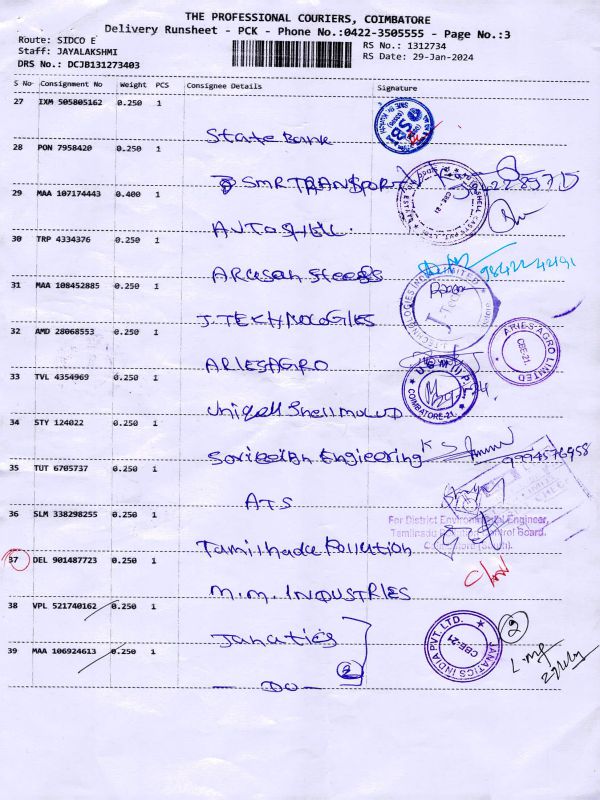 THE PROFESSIONAL COURIERS, COIMBATORE
Delivery Runsheet - PCK - Phone No.:0422-3505555 - Page No.:3
Route: SIDCO E
Staff: JAYALAKSHMI
DRS No.: DCJB131273403
RS No.: 1312734
RS Date: 29-Jan-2024
S No Consignment No Weight PCS Consignee Details Signature
27 IXM 505805162 0.250 1
State Bank
28 PON 7958420 0.250 1
SMR TRANSPORT
29 MAA 107174443 0.400 1
CBE-21
AUTOSHELL.
30 TRP 4334376 0.250 1
Arasan Steegs 98422 42191
31 MAA 108452885 0.250 1
J. TECHNOLOGIES
32 AMD 28068553 0.250 1
ARIES AGRO LIMITED
CBE-21
ARIESAGRO
33 TVL 4354969 0.250 1
U S M (I) P.L.
COIMBATORE-21.
Uniqall Shell mould
34 STY 124022 0.250 1
Engineering 9994576958
35 TUT 6705737 0.250 1
ATS
36 SLM 338298255 0.250 1
For District Environmental Engineer,
Tamilnadu Pollution Control Board,
Coimbatore (South).
Tamilnadu Pollution
37 DEL 901487723 0.250 1
M.M. INDUSTRIES
38 VPL 521740162 0.250 1
Janatics
JANATICS INDIA PVT. LTD.
CBE-21
2
39 MAA 106924613 0.250 1
2
DO